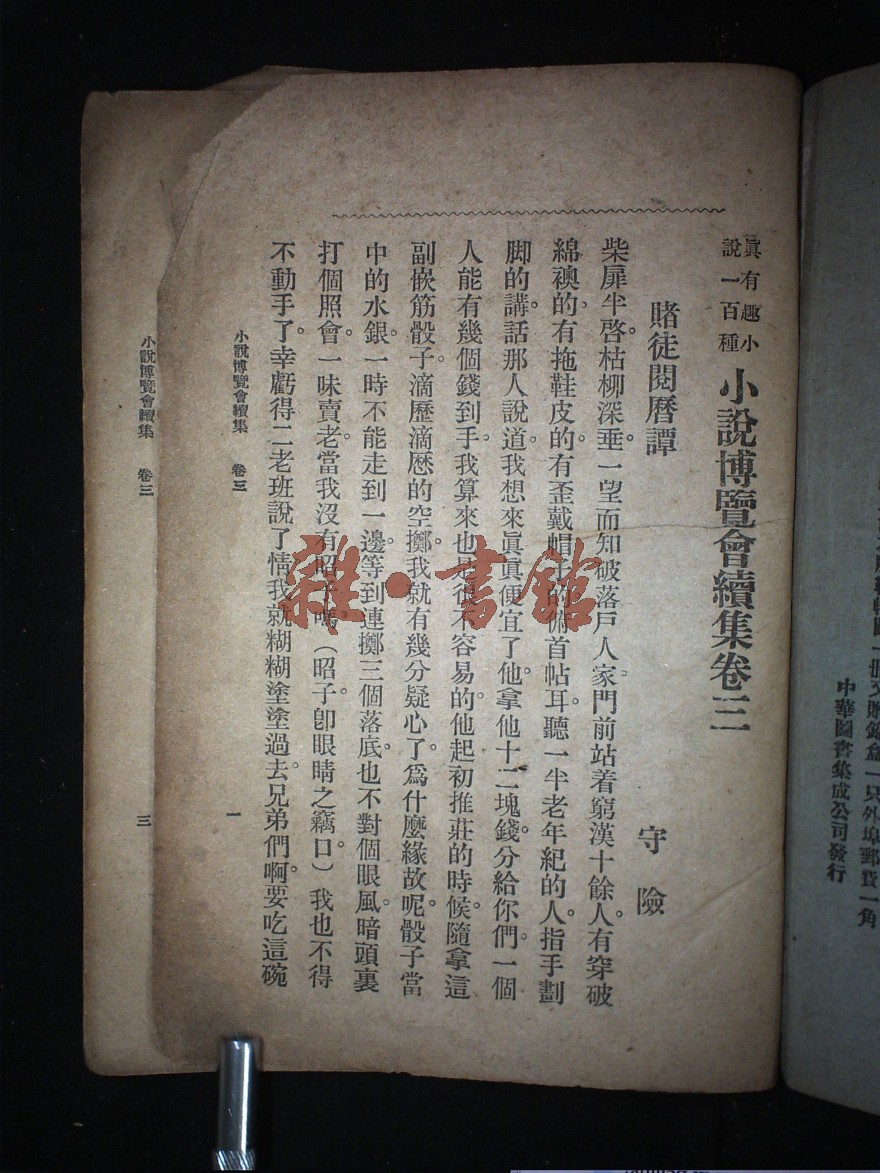 眞有趣小
說一百種
小說博覽會續集卷三
賭徒閱曆譚
守險
柴扉半啓。枯柳深垂。一望而知破落戶人家。門前站着窮漢十餘人。有穿破
綿襖的。有拖鞋皮的。有歪戴帽子的。俯首帖耳。聽一半老年紀的人。指手劃
脚的講話。那人說道。我想來眞眞便宜了他。拿他十二塊錢。分給你們。一個
人能有幾個錢到手。我算來也是很不容易的。他起初推莊的時候。隨拿這
副嵌筋骰子。滴歷滴歷的空擲。我就有幾分疑心了。爲什麼緣故呢。骰子當
中的水銀。一時不能走到一邊。等到連擲三個落底。也不對個眼風。暗頭裏
打個照會。一味賣老。當我沒有昭子嗎。（昭子卽眼睛之竊口。）我也不得
不動手了。幸虧得二老班說了情。我就糊糊塗塗過去。兄弟們啊。要吃這碗
小說博覽會續集 卷三
一
小說博覽會續集 卷三
三
雜·書館
一册又贈銀盒一只外埠郵費一角
中華圖書集成公司發行